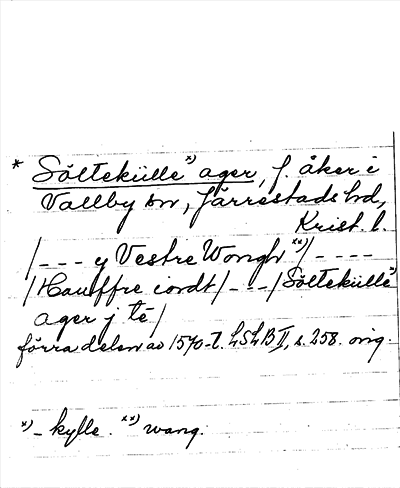 * Sölteküllex) ager, f. åker i
Vallby sn, Järrestads hd,
Krist. l.
/--- y Vestre Wonghxx)/----
/Hauffre iordt/---/Sölteküllex)
ager j té/
förra delen av 1570-t. LSLB II, s. 258. orig.
x) - kylle. xx) wang.